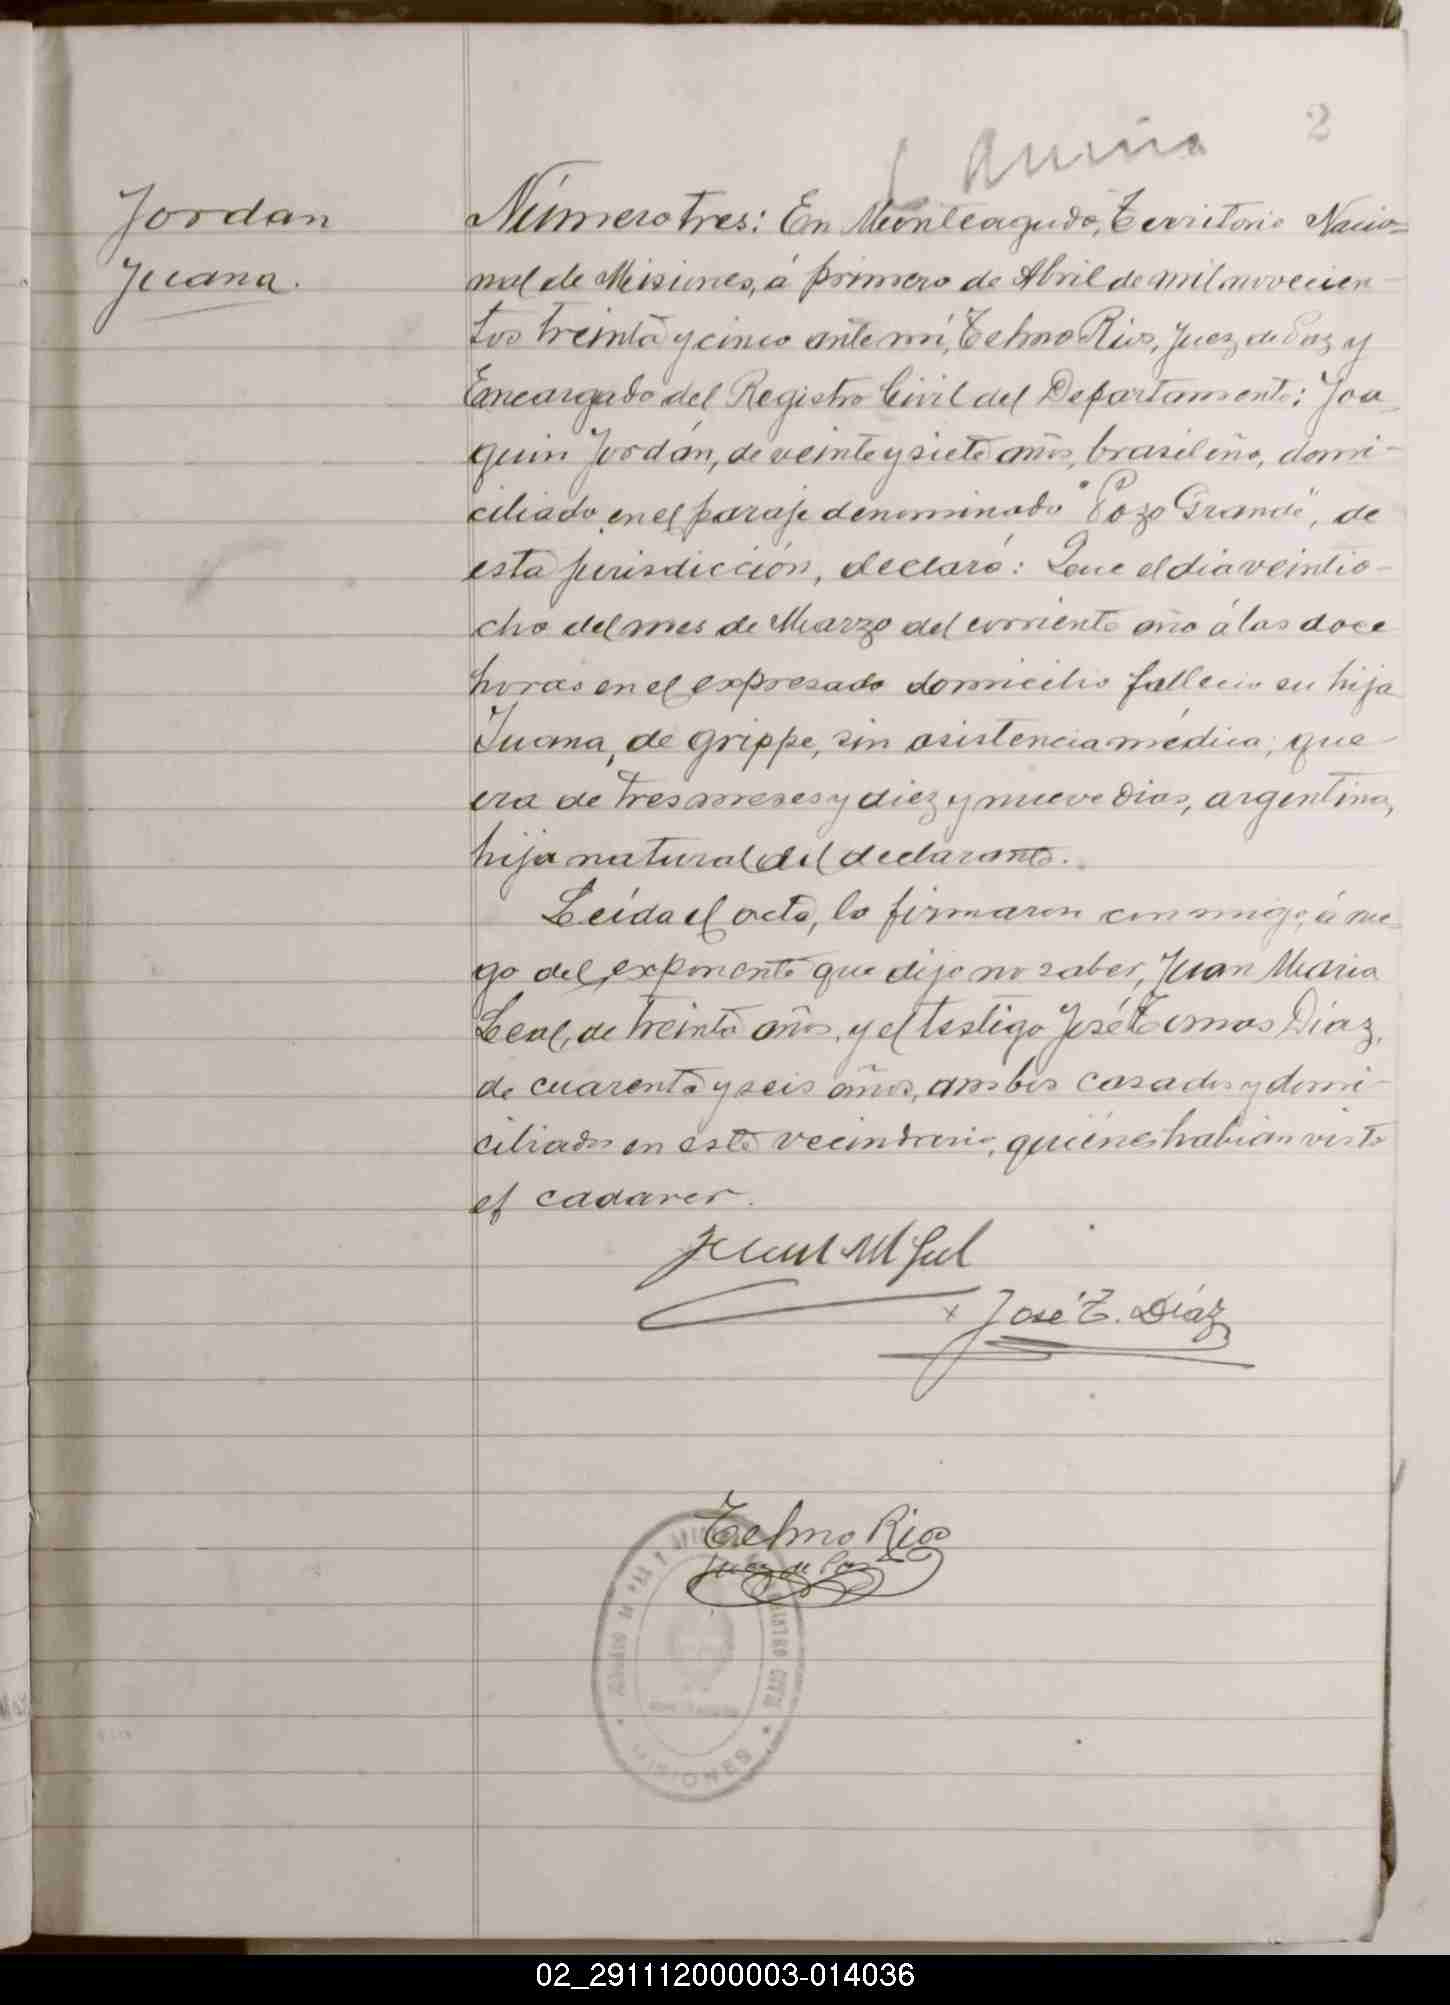 2
Jordan
Juana.
Número tres: En Monteagudo, Territorio Nacio=
nal de Misiones, á primero de Abril de mil novecien-
tos treinta y cinco ante mí, Telmo Rios, Juez de Paz y
Encargado del Registro Civil del Departamento; Joa-
quin Jordán, de veinte y siete años, brasileño, domi-
ciliado en el paraje denominado "Pozo Grande", de
esta jurisdicción, declaró: Que el dia veintio-
cho del mes de Marzo del corriente año á las doce
horas en el expresado domicilio falleció su hija
Juana, de grippe, sin asistencia médica; que
era de tres meses y diez y nueve dias, argentina,
hija natural del declarante.
Leída el acta, la firmaron conmigo, á rue-
go del exponente que dijo no saber, Juan Maria
Leal, de treinta años, y el testigo José Tomas Diaz,
de cuarenta y seis años, ambos casados y domi-
ciliados en este vecindario, quiénes habian visto
el cadaver.
Juan M Leal
x José T. Díaz
Telmo Rios
Juez de Paz
JUZGADO DE PAZ Y REGISTRO CIVIL
MISIONES
02_291112000003-014036